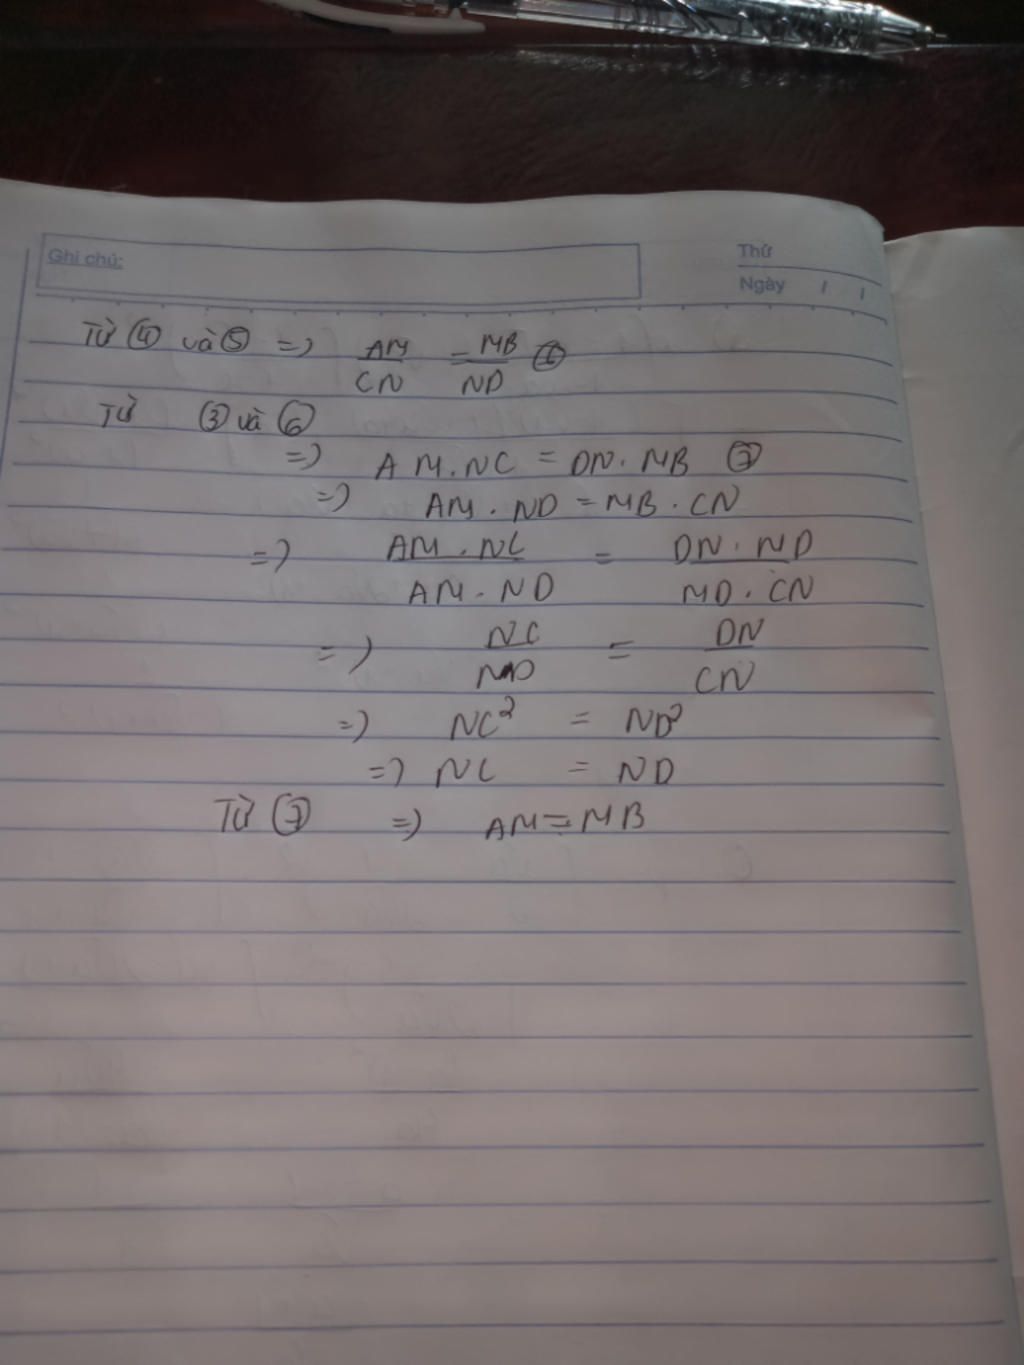 Ghi chú:
Thứ
Ngày / /
Từ ④ và ⑤ => AM/CN = MB/ND ⑥
Từ ③ và ⑥
=> AM.NC = DN.MB ⑦
=> AM.ND = MB.CN
=> AM.NC/AM.ND = DN.MD/MD.CN
=> NC/ND = DN/CN
=> NC² = ND²
=> NC = ND
Từ ⑦ => AM = MB